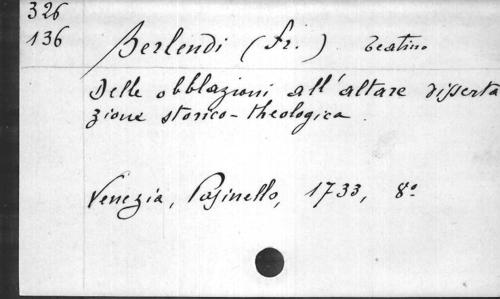 326
136
Berlendi (Fr.) Teatino
Delle obblazioni all'altare disserta
zione storico-theologica.
Venezia, Pasinello, 1733, 8°